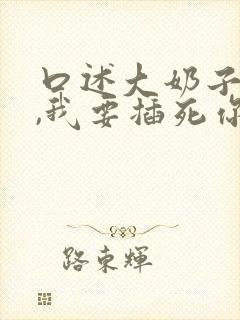 口述大奶子
,我要插死你
路东辉